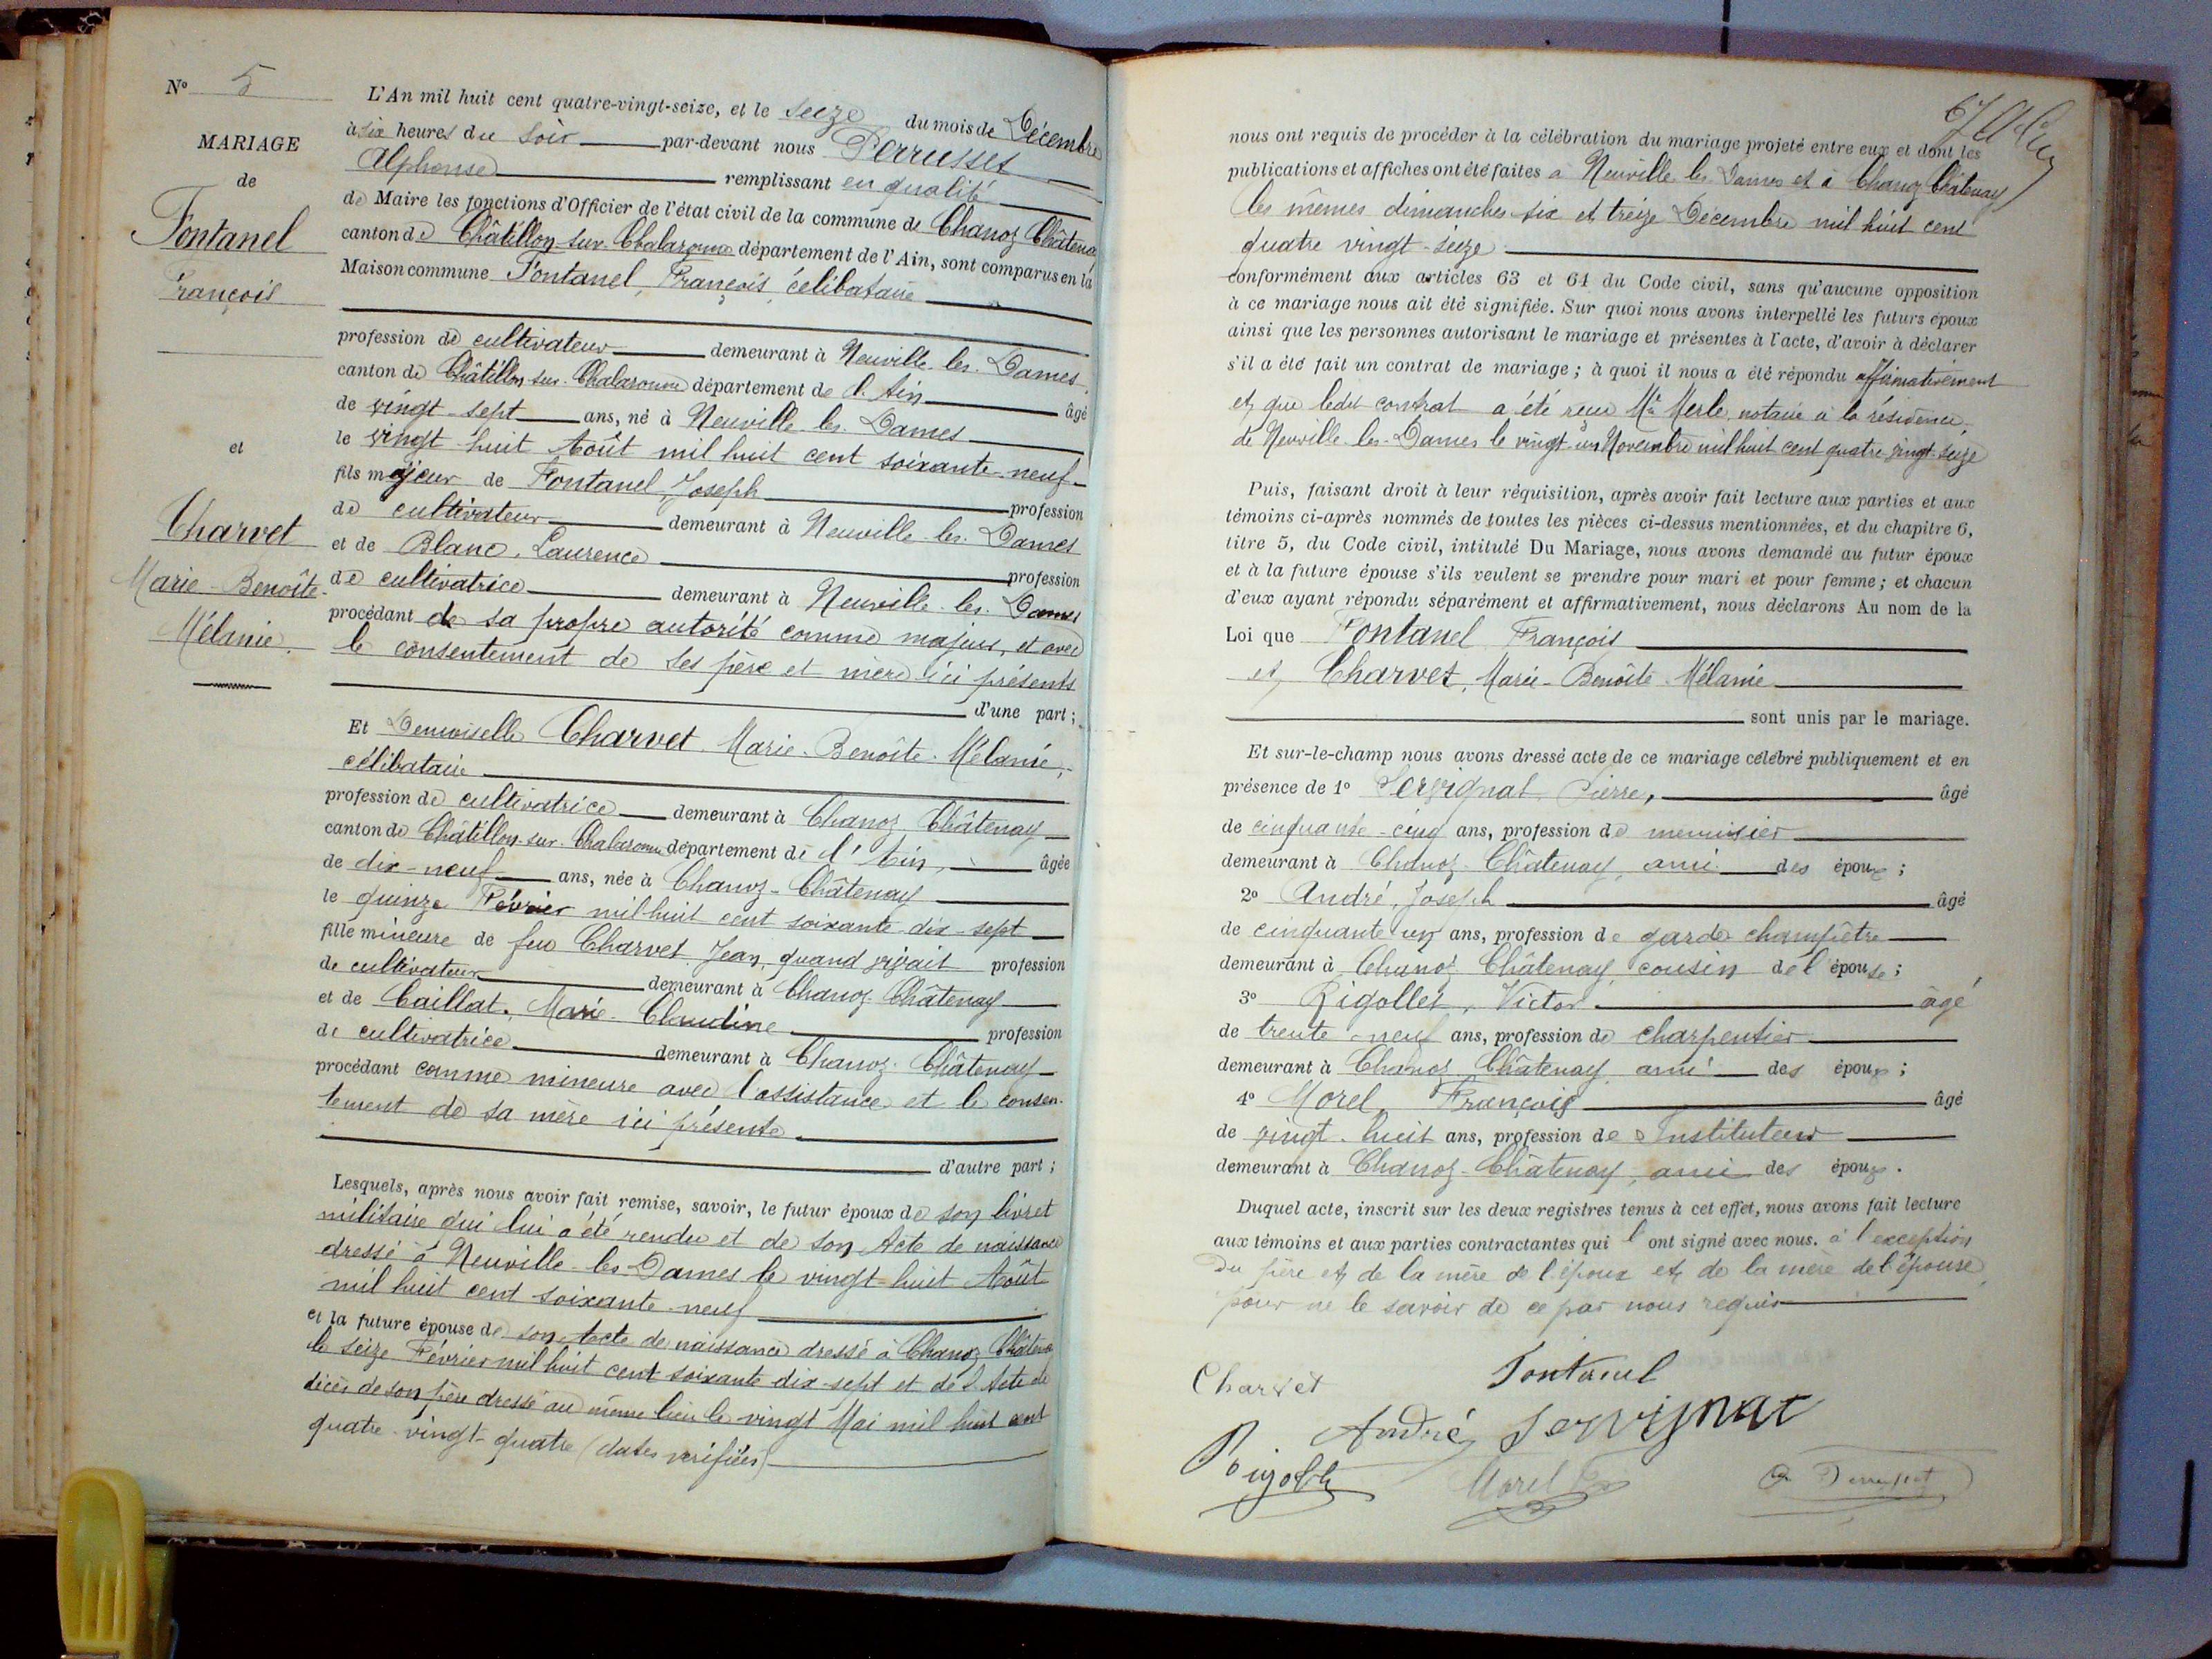 N° 5
MARIAGE
de
Fontanel
François
et
Charvet
Marie-Benoîte-
Mélanie.
L'An mil huit cent quatre-vingt-seize, et le seize du mois de Décembre
à six heures du soir par-devant nous Perrusset
Alphonse remplissant en qualité
de Maire les fonctions d'Officier de l'état civil de la commune de Chanoz Châtenay
canton de Châtillon-sur-Chalaronne département de l'Ain, sont comparus en la
Maison commune Fontanel, François, célibataire
profession de cultivateur demeurant à Neuville-les-Dames,
canton de Châtillon-sur-Chalaronne département de l'Ain âgé
de vingt-sept ans, né à Neuville-les-Dames
le vingt-huit Août mil huit cent soixante-neuf
fils majeur de Fontanel, Joseph profession
de cultivateur demeurant à Neuville-les-Dames
et de Blanc, Laurence profession
de cultivatrice demeurant à Neuville-les-Dames
procédant de sa propre autorité comme majeur, et avec
le consentement de ses père et mère ici présents
d'une part;
Et Demoiselle Charvet Marie-Benoîte-Mélanie,
célibataire
profession de cultivatrice demeurant à Chanoz Châtenay
canton de Châtillon-sur-Chalaronne département de l'Ain, âgée
de dix-neuf ans, née à Chanoz-Châtenay
le quinze Février mil huit cent soixante-dix-sept
fille mineure de feu Charvet Jean, quand vivait profession
de cultivateur demeurant à Chanoz-Châtenay
et de Caillat, Marie-Claudine profession
de cultivatrice demeurant à Chanoz-Châtenay
procédant comme mineure avec l'assistance et le consen-
tement de sa mère ici présente
d'autre part;
Lesquels, après nous avoir fait remise, savoir, le futur époux de son livret
militaire qui lui a été rendu et de son Acte de naissance
dressé à Neuville-les-Dames le vingt-huit Août
mil huit cent soixante-neuf
et la future épouse de son Acte de naissance dressé à Chanoz Châtenay
le seize Février mil huit cent soixante dix-sept et de l'Acte de
décès de son père dressé au même lieu le vingt Mai mil huit cent
quatre-vingt-quatre (dates vérifiées)
nous ont requis de procéder à la célébration du mariage projeté entre eux et dont les
publications et affiches ont été faites à Neuville les Dames et à Chanoz Châtenay
les mêmes dimanches six et treize Décembre mil huit cent
quatre vingt-seize
conformément aux articles 63 et 64 du Code civil, sans qu'aucune opposition
à ce mariage nous ait été signifiée. Sur quoi nous avons interpellé les futurs époux
ainsi que les personnes autorisant le mariage et présentes à l'acte, d'avoir à déclarer
s'il a été fait un contrat de mariage; à quoi il nous a été répondu affirmativement
et que ledit contrat a été reçu Me Merle notaire à la résidence
de Neuville-les-Dames le vingt-un Novembre mil huit cent quatre vingt-seize
Puis, faisant droit à leur réquisition, après avoir fait lecture aux parties et aux
témoins ci-après nommés de toutes les pièces ci-dessus mentionnées, et du chapitre 6,
titre 5, du Code civil, intitulé Du Mariage, nous avons demandé au futur époux
et à la future épouse s'ils veulent se prendre pour mari et pour femme; et chacun
d'eux ayant répondu séparément et affirmativement, nous déclarons Au nom de la
Loi que Fontanel François
et Charvet, Marie-Benoîte-Mélanie
sont unis par le mariage.
Et sur-le-champ nous avons dressé acte de ce mariage célébré publiquement et en
présence de 1° Servignat Pierre, âgé
de cinquante-cinq ans, profession de menuisier
demeurant à Chanoz-Châtenay, ami des époux;
2° André, Joseph âgé
de cinquante un ans, profession de garde champêtre
demeurant à Chanoz Châtenay cousin de l'épouse;
3° Rigollet, Victor âgé
de trente-neuf ans, profession de charpentier
demeurant à Chanoz Châtenay, ami des époux;
4° Morel, François âgé
de vingt-huit ans, profession de Instituteur
demeurant à Chanoz-Châtenay, ami des époux.
Duquel acte, inscrit sur les deux registres tenus à cet effet, nous avons fait lecture
aux témoins et aux parties contractantes qui l'ont signé avec nous. à l'exception
Du père et de la mère de l'époux et de la mère de l'épouse,
pour ne le savoir de ce par nous requis
Charvet Fontanel
André Servignat
Rigollet Morel A Perrusset